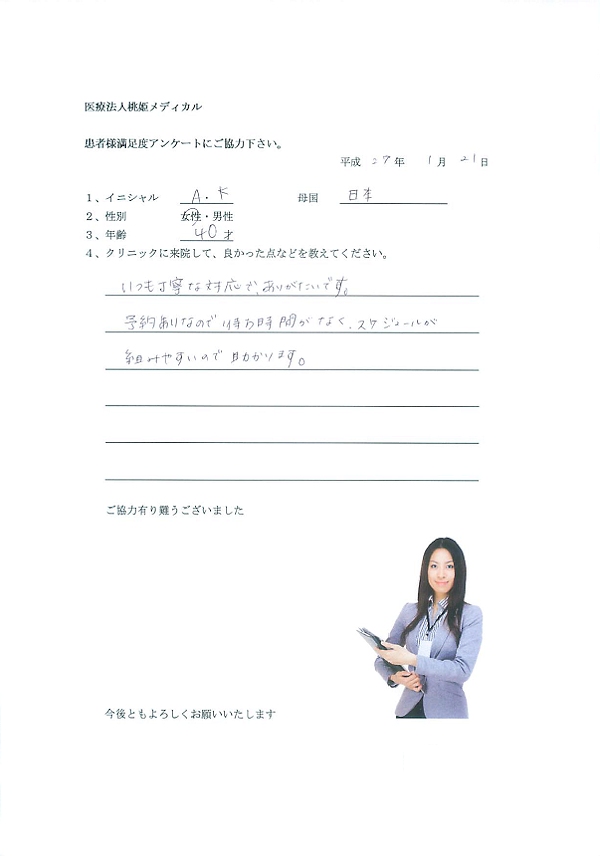 医療法人桃姫メディカル
患者様満足度アンケートにご協力下さい。
平成 27年 1月 21日
1、イニシャル A.K 母国 日本
2、性別 女性・男性
3、年齢 40才
4、クリニックに来院して、良かった点などを教えてください。
いつも丁寧な対応で、ありがたいです。
予約ありなので待ち時間がなく、スケジュールが
組みやすいので助かります。
ご協力有り難うございました
今後ともよろしくお願いいたします